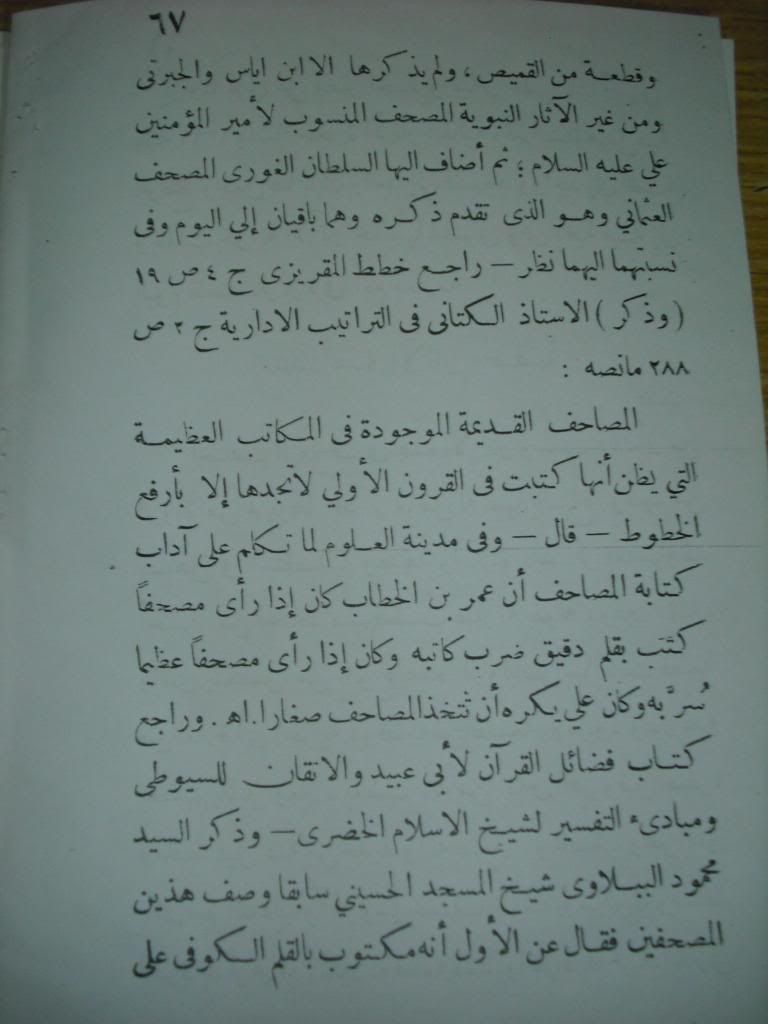 ٦٧
وقطعة من القميص، ولم يذكرها الا ابن اياس والجبرتى
ومن غير الآثار النبوية المصحف المنسوب لأمير المؤمنين
علي عليه السلام ؛ ثم أضاف اليها السلطان الغورى المصحف
العثماني وهو الذى تقدم ذكره وهما باقيان إلي اليوم وفى
نسبتهما اليهما نظر – راجع خطط المقريزى ج ٤ ص ١٩
( وذكر ) الاستاذ الكتانى فى التراتيب الادارية ج ٢ ص
٢٨٨ مانصه :
المصاحف القديمة الموجودة فى المكاتب العظيمة
التي يظن أنها كتبت فى القرون الأولي لاتجدها إلا بأرفع
الخطوط – قال – وفى مدينة العلوم لما تكلم على آداب
كتابة المصاحف أن عمر بن الخطاب كان إذا رأى مصحفاً
كتب بقلم دقيق ضرب كاتبه وكان إذا رأى مصحفاً عظيما
سُرَّ به وكان علي يكره أن تتخذ المصاحف صغارا. اه . وراجع
كتاب فضائل القرآن لأبى عبيد والاتقان للسيوطى
ومبادىء التفسير لشيخ الاسلام الخضرى – وذكر السيد
محمود الببلاوى شيخ المسجد الحسيني سابقا وصف هذين
المصحفين فقال عن الأول أنه مكتوب بالقلم الكوفى على